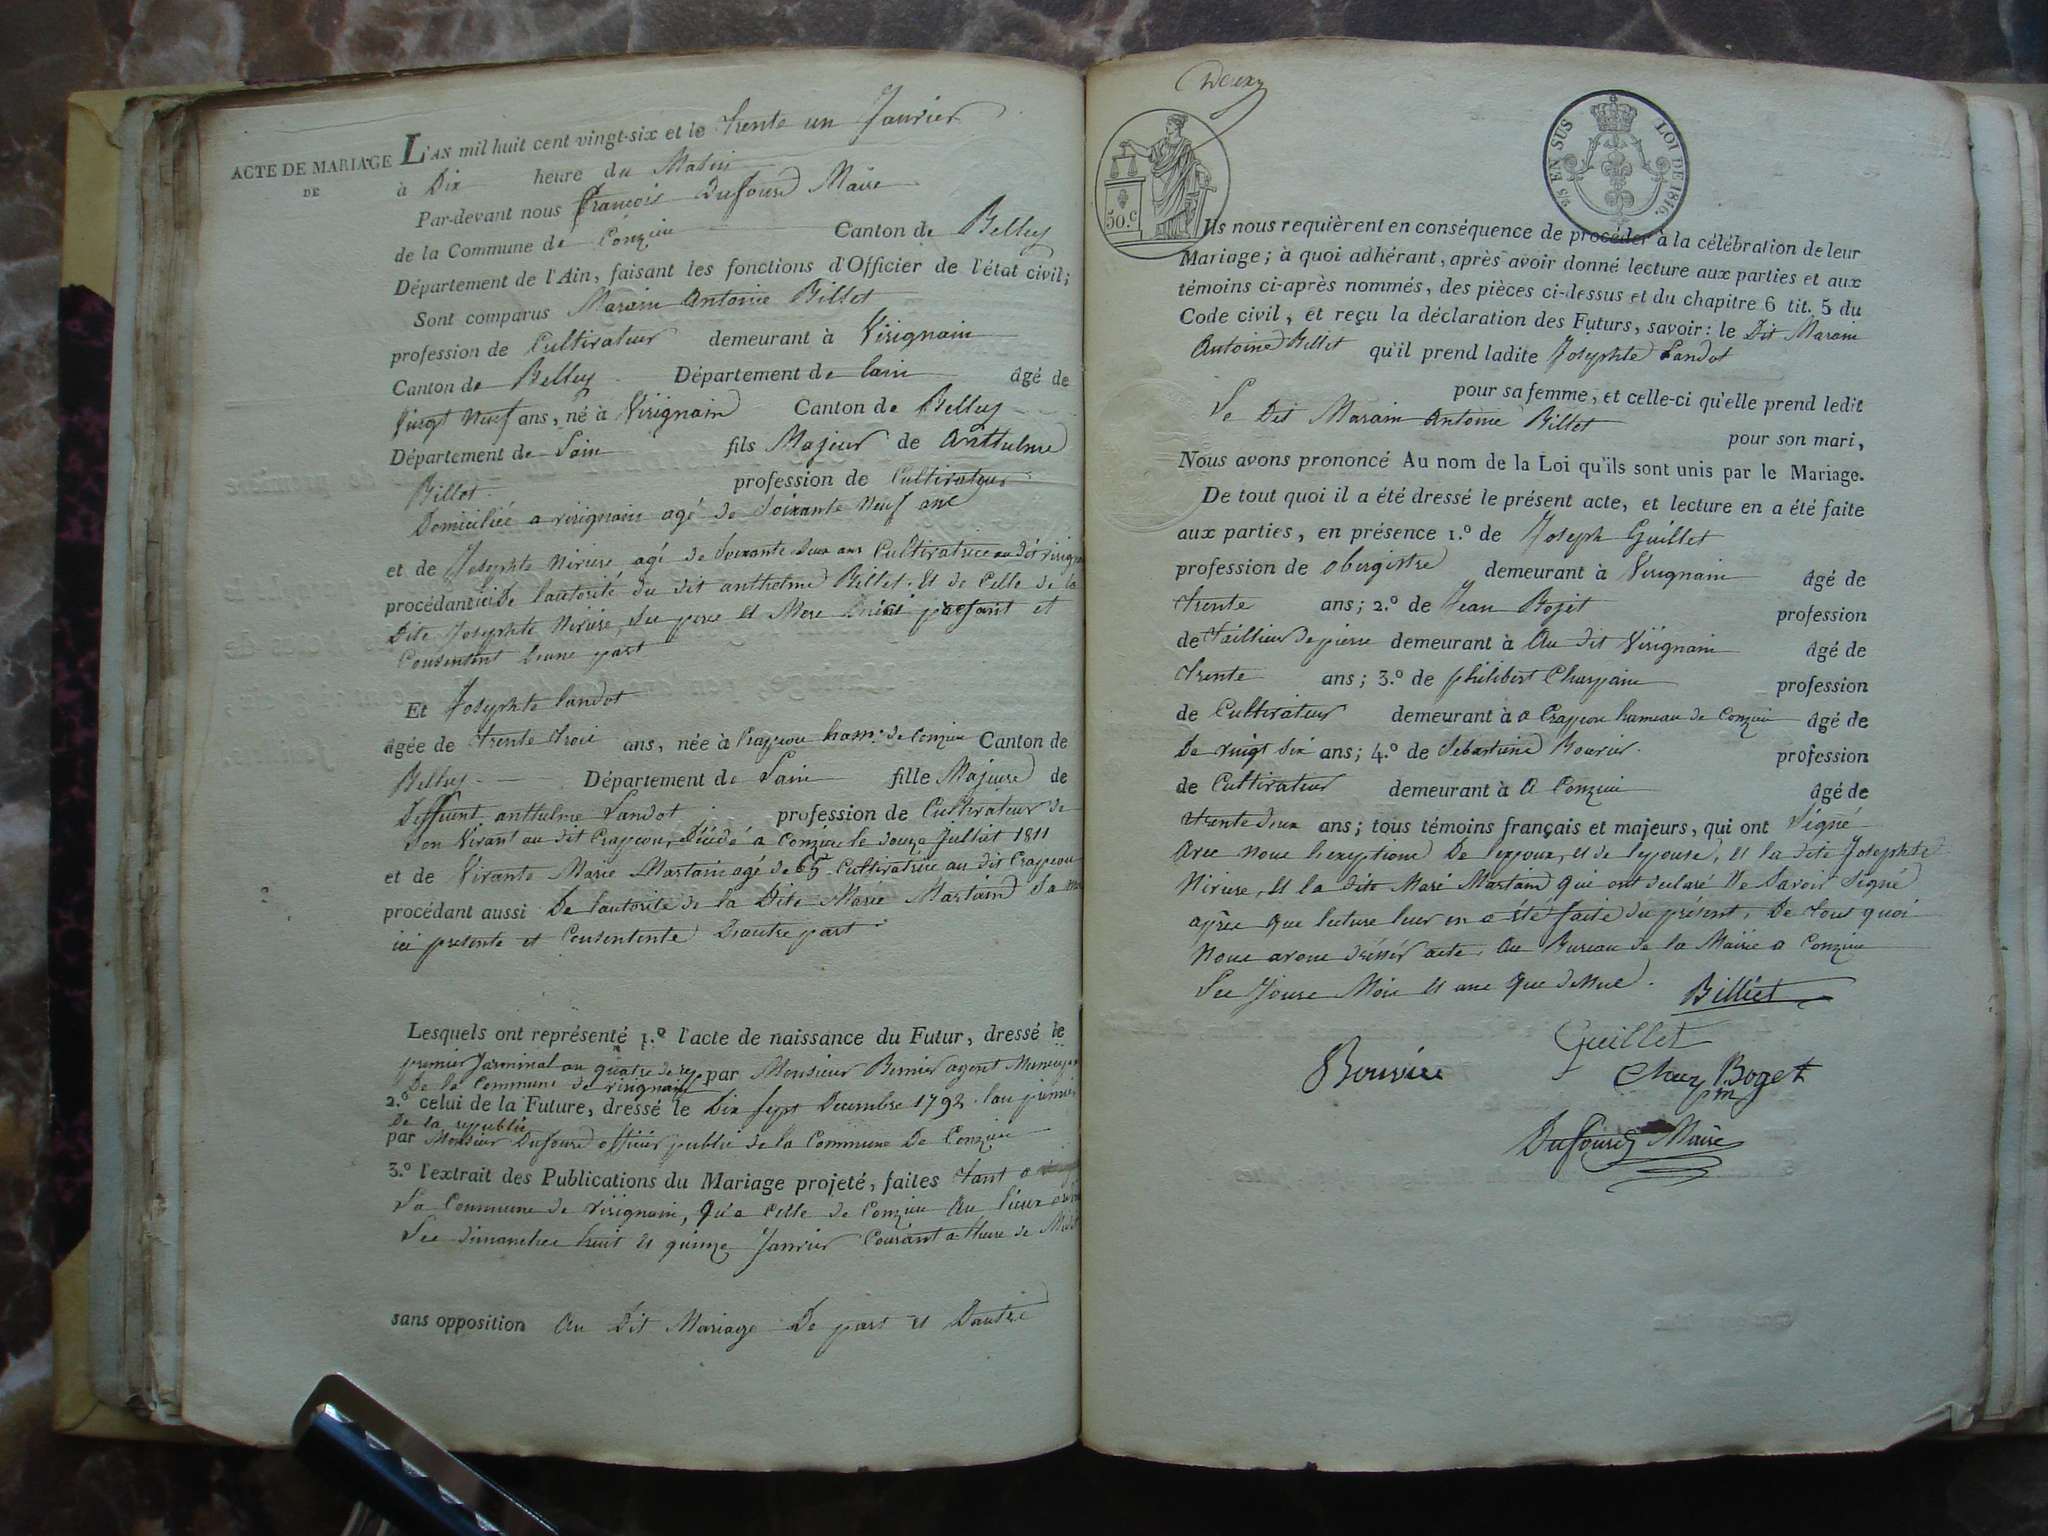 ACTE DE MARIAGE
DE
L'AN mil huit cent vingt-six et le trente un Janvier
à Dix heure du Matin
Par-devant nous François Dufourd Maire
de la Commune de Conzieu Canton de Belley
Département de l'Ain, faisant les fonctions d'Officier de l'état civil;
Sont comparus Marain Antoine Billet
profession de Cultivateur demeurant à Virignain
Canton de Belley Département de lain âgé de
Vingt Neuf ans, né à Virignain Canton de Belley
Département de Lain fils Majeur de Anthelme
Billet profession de Cultivateur
Domiciliée a virignain agé de Soixante Neuf ans
et de Josephte Niviere agé de Soixante Deux ans Cultivatrice au dit
procédant de lautorité du dit anthelme Billet. Et de Celle de la
Dite Josephte Niviere, Ses pere et Mere et
Consentent Dune part
Et Josephte landot
âgée de trente trois ans, née à Crapeou ham. de Conzieu Canton de
Belley Département de Lain fille Majeure de
Deffunt anthelme Landot profession de Cultivateur de
Son Vivant au dit Crapeou, Décédé a Conzieu le douze Juillet 1811
et de Vivante Marie Martain agé de 65 Cultivatrice au dit Crapeou
procédant aussi De lautorité de la Dite Marie Martain Sa
ici presente et Consentente Dautre part
Lesquels ont représenté 1.º l'acte de naissance du Futur, dressé le
premier Jarminal an quatre de par Monsieur Bernier agent
De la Commune de virignain
2.º celui de la Future, dressé le Dix Sept Decembre 1792 lan premier
De la republic
par Monsieur Dufourd officier public de la Commune De Conzieu
3.º l'extrait des Publications du Mariage projeté, faites tant a
La Commune de Virignain, Qu'a Celle de Conzieu Au lieux
Les dimanches huit et quinze Janvier Courant a lheure de
sans opposition Au Dit Mariage De part et Dautre
Deux
50.c
2/5 EN SUS LOI DE 1816.
Ils nous requièrent en conséquence de procéder à la célébration de leur
Mariage; à quoi adhérant, après avoir donné lecture aux parties et aux
témoins ci-après nommés, des pièces ci-dessus et du chapitre 6 tit. 5 du
Code civil, et reçu la déclaration des Futurs, savoir: le Dit Marain
Antoine Billet qu'il prend ladite Josephte Landot
pour sa femme, et celle-ci qu'elle prend ledit
Le Dit Marain Antoine Billet
pour son mari,
Nous avons prononcé Au nom de la Loi qu'ils sont unis par le Mariage.
De tout quoi il a été dressé le présent acte, et lecture en a été faite
aux parties, en présence 1.º de Joseph Guillet
profession de obergistre demeurant à Virignain âgé de
trente ans; 2.º de Jean Bojet profession
de Taillieur de pierre demeurant à Au dit Virignain âgé de
trente ans; 3.º de philibert profession
de Cultivateur demeurant à a Crapeou hameau de Conzieu âgé de
De vingt Six ans; 4.º de Sebastiene Bouvier profession
de Cultivateur demeurant à a Conzieu âgé de
trente deux ans; tous témoins français et majeurs, qui ont Signé
Avec Nous De lepoux, et de lepouse, et la dite Josephte
Niviere, et la dite Marié Martain Qui ont declaré Ne Savoir Signé
après Que lecture leur en a été faite du présent, De tous quoi
Nous avons dréssér acte, Au Bureau de la Mairie a Conzieu
Les Jours Mois et ans Que dessus.
Billiet
Guillet
Bouvier Boget
Dufourd Maire